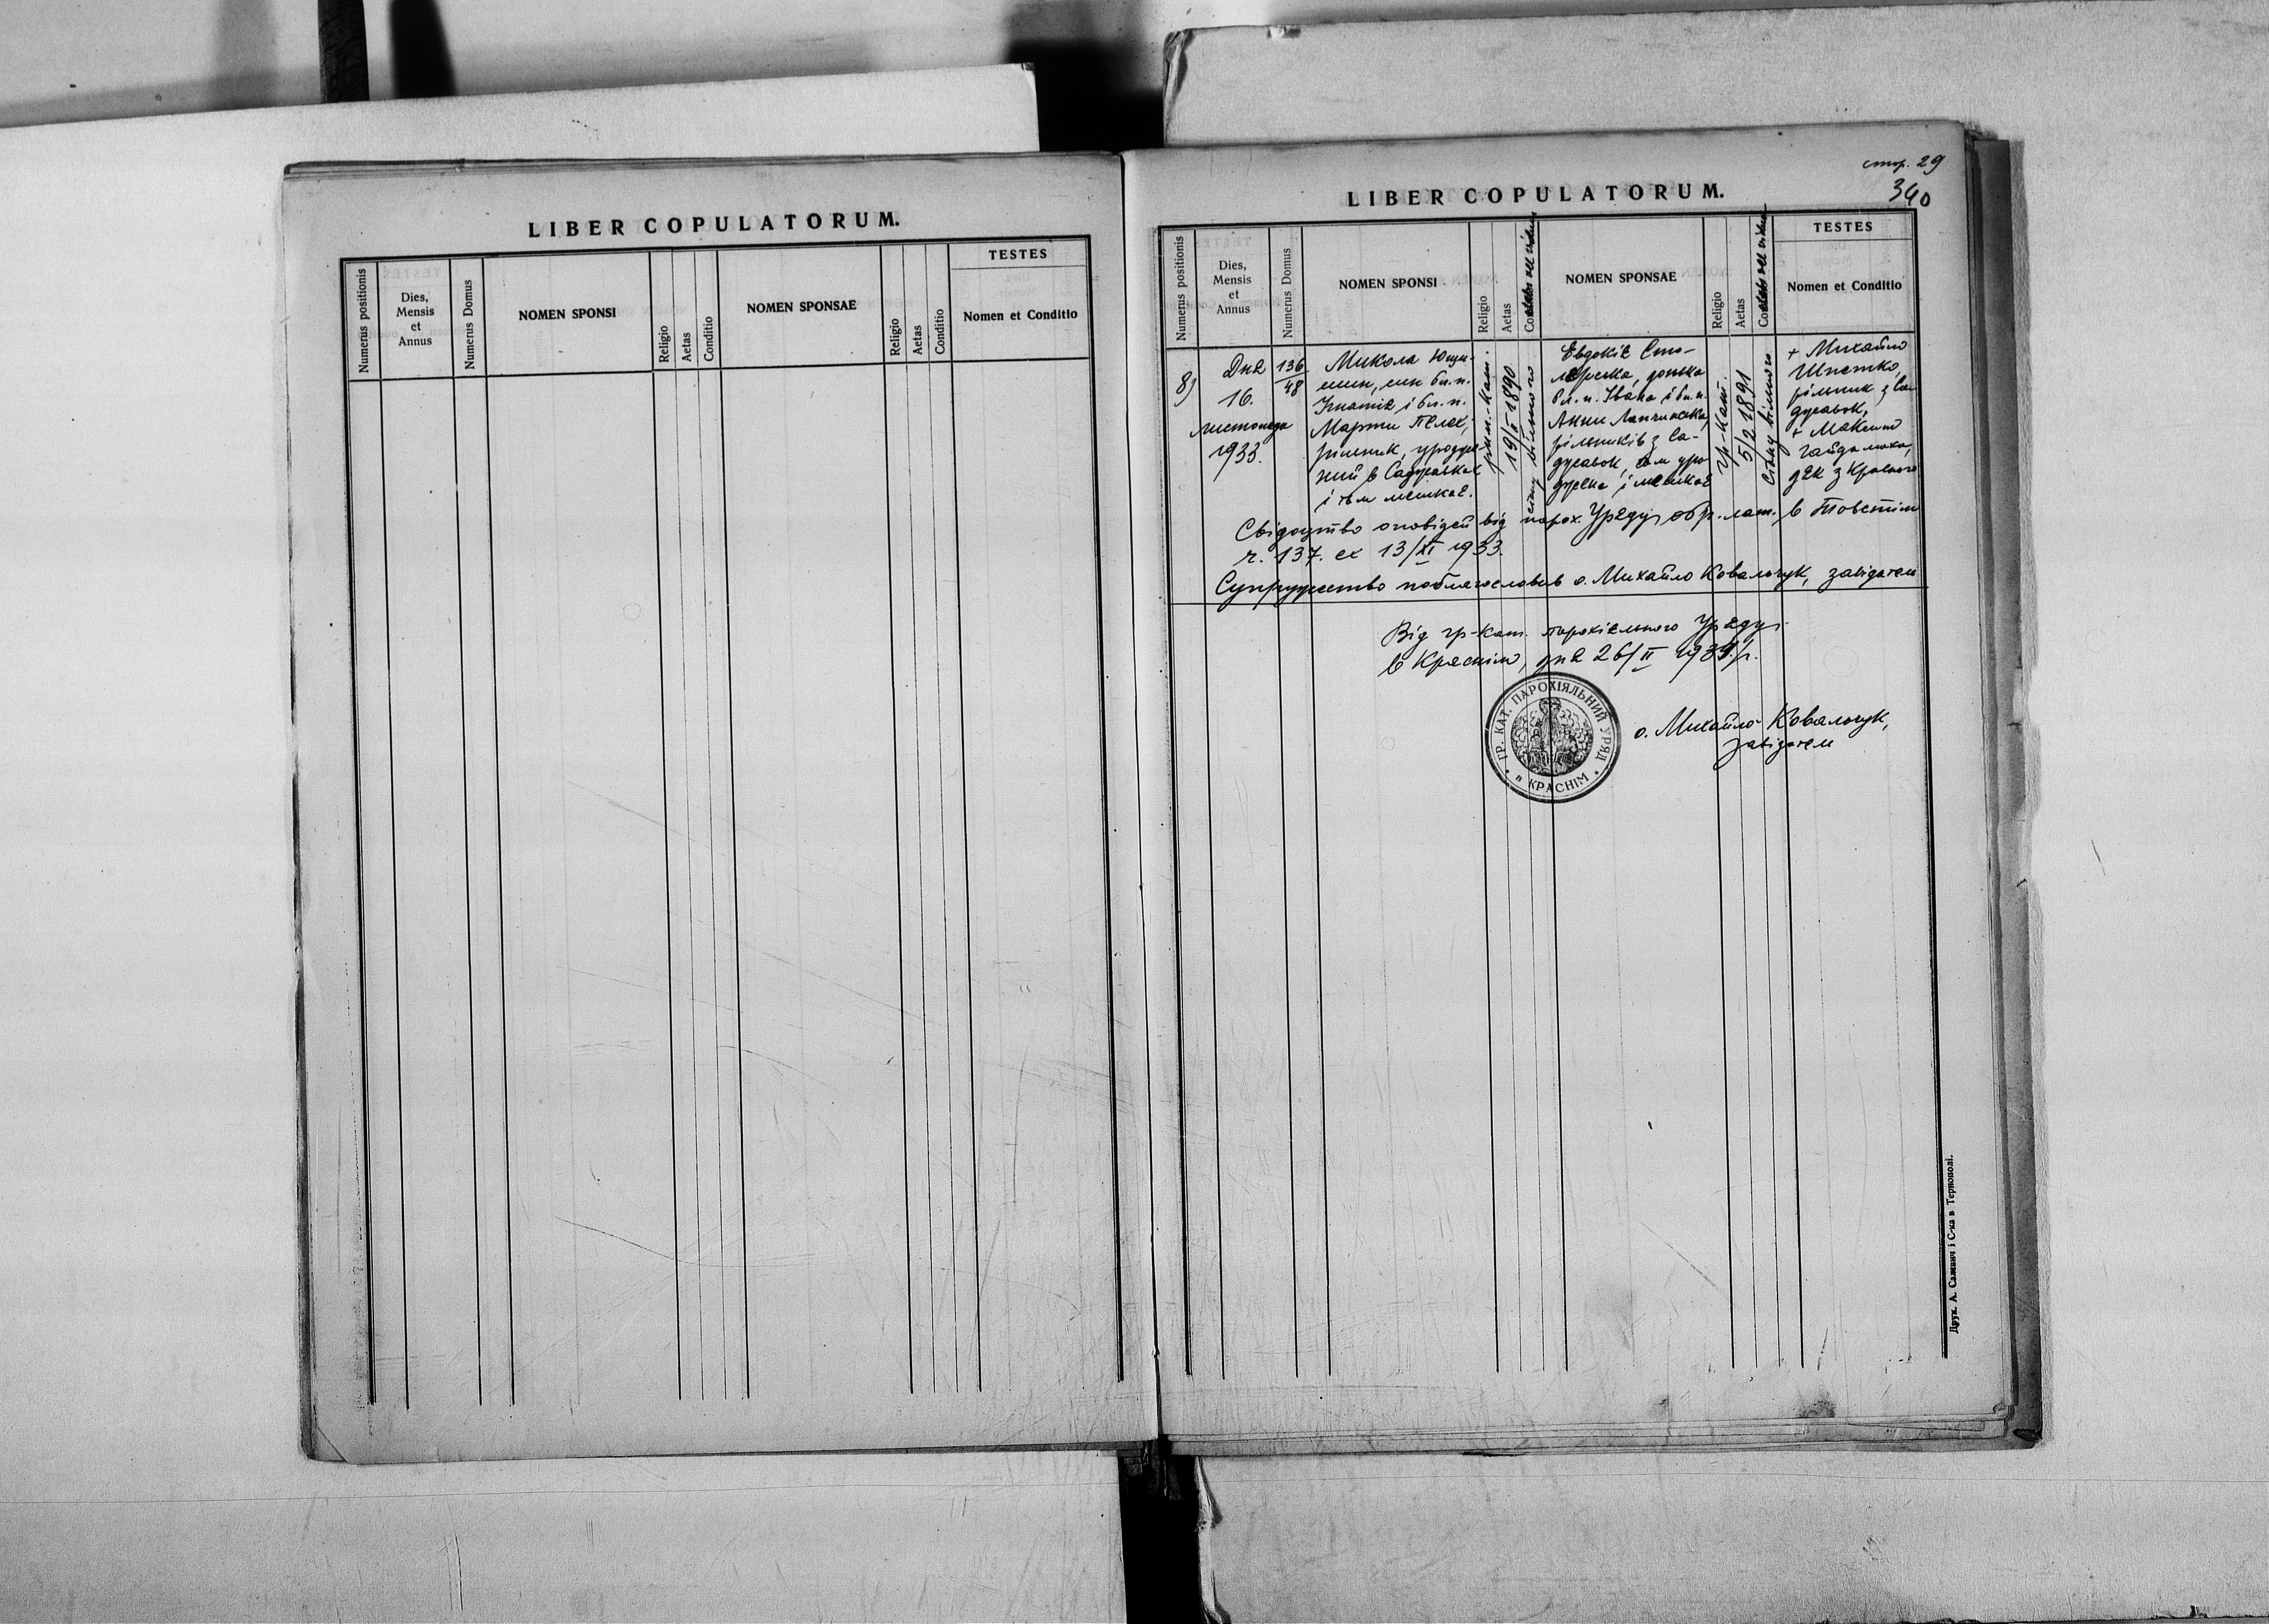 LIBER COPULATORUM.
Numerus positionis
Dies,
Mensis
et
Annus
Numerus Domus
NOMEN SPONSI
Religio
Aetas
Conditio
NOMEN SPONSAE
Religio
Aetas
Conditio
TESTES
Nomen et Conditio
стор. 29
340
LIBER COPULATORUM.
Numerus positionis
Dies,
Mensis
et
Annus
Numerus Domus
NOMEN SPONSI
Religio
Aetas
NOMEN SPONSAE
Religio
Aetas
TESTES
Nomen et Conditio
8)
Дня
16.
листопада
1933.
136
48
Микола Ющи-
шин, син бл. п.
Ігнатія і бл. п.
Марти Пелех,
рільник, уродже-
ний в Саджавках
і там мешкає.
рим.-кат.
19/II 1890
стану вільного
Евдокія Сто-
лярська, донька
бл. п. Івана і бл. п.
Анни
рільників з Са-
джавок, там уро
джена і мешкає
гр-кат.
5/2 1891
стану вільного
+ Михайло
Шпетко,
рільник з Са-
джавок,
+ Максим
Гайдамаха,
дяк з Красного
Свідоцтво оповідей від парох. Уряду обр. лат. в Товстім
ч. 137. ex 13/XI 1933.
Супружество поблагословив о. Михайло Ковальчук, завідатель
Від гр-кат. парохіяльного Уряду
в Краснім, дня 26/II 1934 р.
ГР. КАТ. ПАРОХІЯЛЬНИЙ УРЯД
в КРАСНІМ
о. Михайло Ковальчук,
завідатель
Друк. А. Салевич і С-ка в Тернополі.